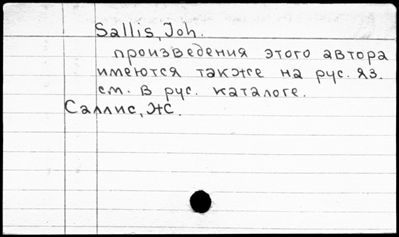 Sallis, Joh.
произведения этого автора
имеются также на рус. яз.
см. в рус. каталоге.
Саллис, Ж С.